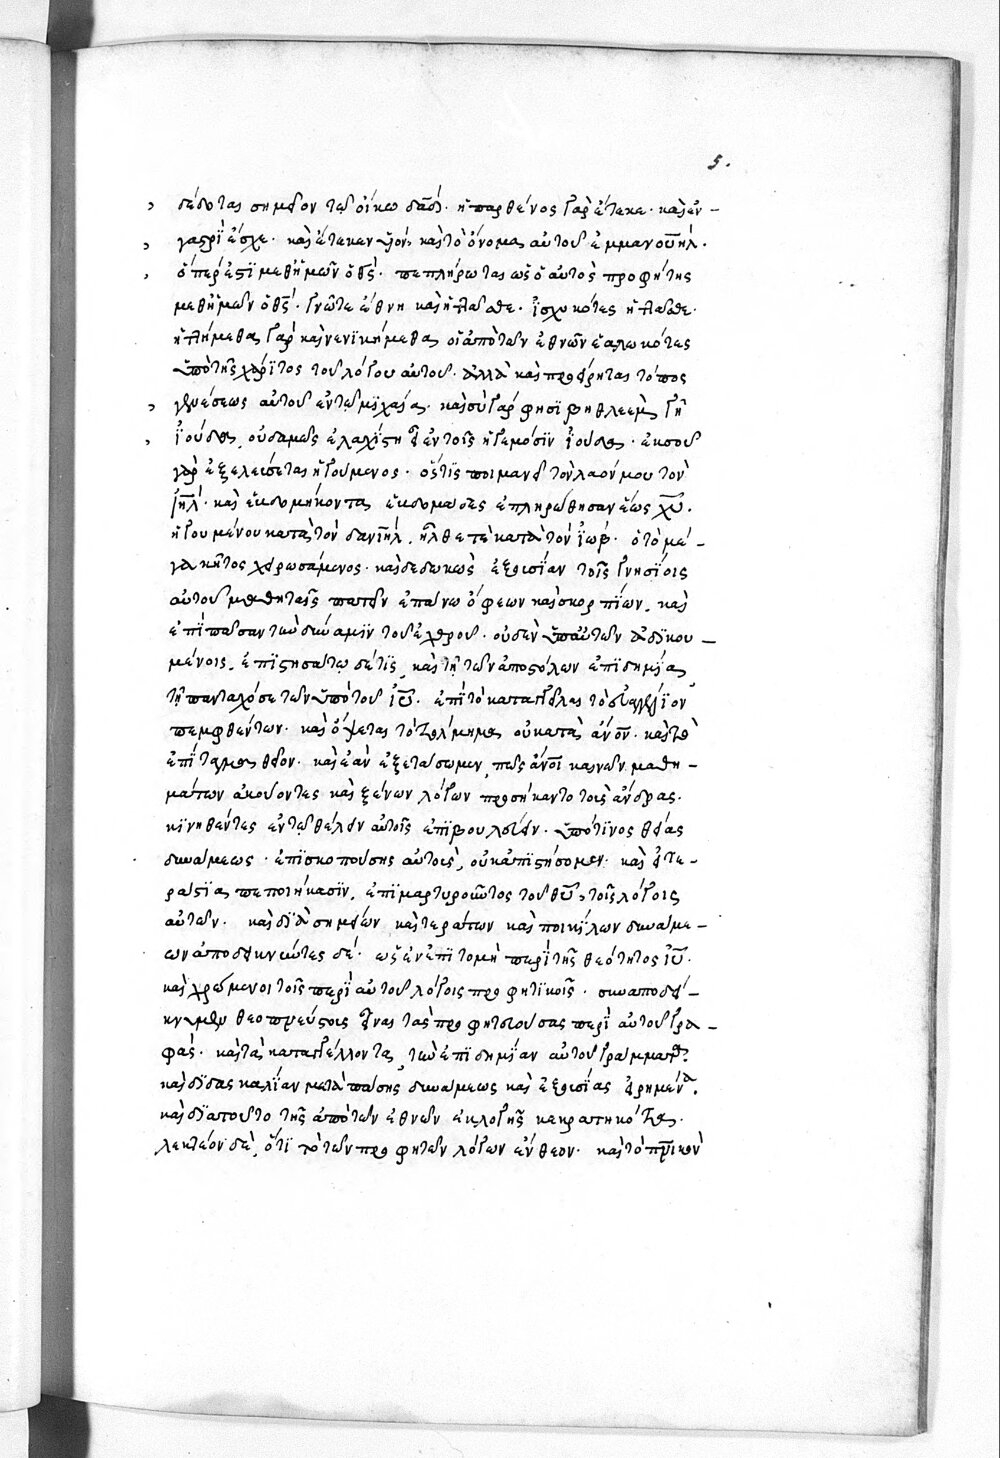 5.
δέδοται σημεῖον τῷ οἴκω δαδ́. ἡ παρθένος γὰρ ἔτεκε. καὶ ἐν –
γαστρὶ ἔσχε. καὶ ἔτεκεν υἱόν, καὶ τὸ ὄνομα αὐτοῦ ἐμμανουήλ.
ὅπερ ἐστὶ μεθ' ἡμῶν ὁ θς́. πεπλήρωται ὡς ὁ αὐτὸς προφήτης
μεθ' ἡμῶν ὁ θς́. γνῶτε ἔθνη καὶ ἡττᾶσθε. ἰσχυκότες ἡττᾶσθε.
ἡττήμεθα γὰρ καὶ νενικήμεθα οἱ ἀπὸ τῶν ἐθνῶν ἑαλωκότες
ὑπὸ τῆς χάριτος τοῦ λόγου αὐτοῦ. ἀλλὰ καὶ προείρηται τόπος
γενέσεως αὐτοῦ ἐν τῷ μιχαίᾳ. καὶ σὺ γάρ φησι βηθλεὲμ γῆ
ἰούδα, οὐδαμῶς ἐλαχίστη εἶ ἐν τοῖς ἡγεμόσιν ἰούδα. ἐκ σοῦ
γὰρ ἐξελεύσεται ἡγούμενος. ὅστις ποιμανεῖ τὸν λαόν μου τὸν
ιηλ́. καὶ ἑβδομήκοντα ἑβδομάδες ἐπληρώθησαν ἕως χυ.
ἡγουμένου κατὰ τὸν δανιήλ. ἦλθέ τε κατὰ τὸν ἰώβ. ὁ τὸ μέ –
γα κῆτος χειρωσάμενος. καὶ δεδωκὼς ἐξουσίαν τοῖς γνησίοις
αὐτοῦ μαθηταῖς πατεῖν ἐπάνω ὄφεων καὶ σκορπίων, καὶ
ἐπὶ πᾶσαν τὴν δύναμιν τοῦ ἐχθροῦ. οὐδὲν ὑπ' αὐτῶν ἀδικου –
μένοις. ἐπιστησάτω δέ τις καὶ τῇ τῶν ἀποστόλων ἐπιδημίᾳ
τῇ πανταχόσε τῶν ὑπὸ τοῦ ιυ. ἐπὶ τὸ καταγγεῖλαι τὸ εὐαγγέλιον
πεμφθέντων. καὶ ὄψεται τὸ τόλμημα οὐ κατὰ ἄνον. καὶ τὸ
ἐπίταγμα θεῖον. καὶ ἐὰν ἐξετάσωμεν πῶς ἄνοι καινῶν μαθη –
μάτων ἀκούοντες καὶ ξένων λόγων προσήκαντο τοὺς ἄνδρας.
κινηθέντες ἐν τῷ θέλειν αὐτοῖς ἐπιβουλεύειν. ὑπό τινος θείας
δυνάμεως. ἐπισκοπούσης αὐτούς, οὐκ ἀπιστήσομεν. καὶ εἰ τε –
ράστια πεποιήκασιν, ἐπιμαρτυροῦντος τοῦ θυ, τοῖς λόγοις
αὐτῶν. καὶ διὰ σημείων καὶ τεράτων καὶ ποικίλων δυνάμε –
ων ἀποδεικνύντες δέ. ὡς ἐν ἐπιτομῇ περὶ τῆς θεότητος ιυ.
καὶ χρώμενοι τοῖς περὶ αὐτοῦ λόγοις προφητικοῖς. συναποδεί –
κνυμεν θεοπνεύστους εἶναι τὰς προφητευούσας περὶ αὐτοῦ γρα –
φάς. καὶ τὰ καταγγέλλοντα τὴν ἐπιδημίαν αὐτοῦ γράμματα.
καὶ διδασκαλίαν μετὰ πάσης δυνάμεως καὶ ἐξουσίας εἰρημένα.
καὶ διὰ τοῦτο τῆς ἀπὸ τῶν ἐθνῶν ἐκλογῆς κεκρατηκότα.
λεκτέον δὲ, ὅτι τὸ τῶν προφητῶν λόγων ἔνθεον. καὶ τὸ πνικὸν